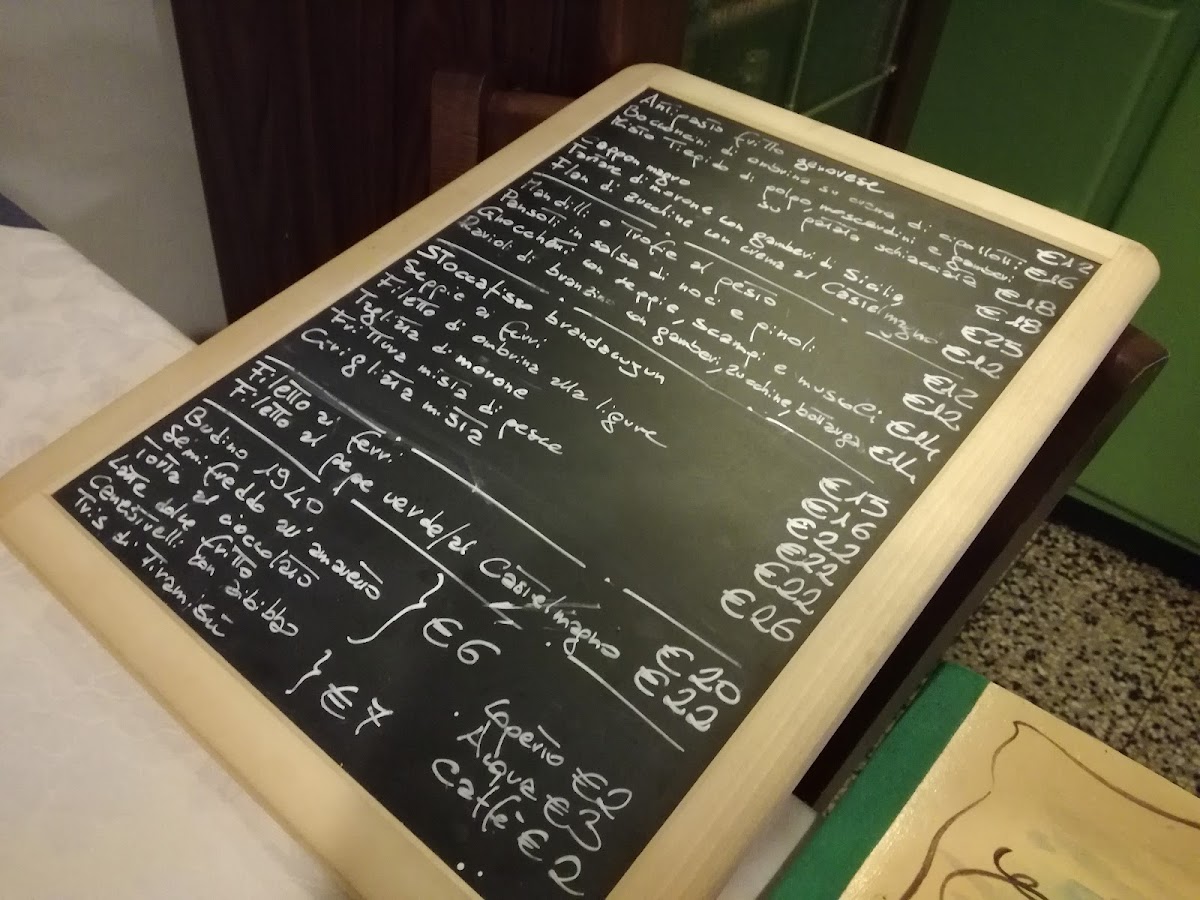 Antipasto fritto genovese €12
Bocconcini di ombrina su crema di cipollotti €16
Misto Tiepido di polpo, moscardini e gamberi
su patata schiacciata €18
Cappon magro €18
Tartare di morone con gamberi di Sicilia €25
Flan di zucchine con crema al Castelmagno €12
Mandilli o Trofie al pesto €12
Pansoti in salsa di noci e pinoli €12
Gnocchetti con seppie, scampi e muscoli €14
Ravioli di branzino con gamberi, zucchine, bottarga €14
Stoccafisso brandacujun €15
Seppie ai ferri €16
Filetto di ombrina alla ligure €22
Tagliata di morone €22
Frittura mista di pesce €22
Grigliata mista €26
Filetto ai ferri €20
Filetto al pepe verde/al Castelmagno €22
Budino 1940
Semifreddo all'amaretto
Torta al cioccolato
Latte dolce fritto
€6
Canestrelli con zibibbo
Tris di Tiramisù
€7
Coperto €2
Acqua €3
Caffè €2